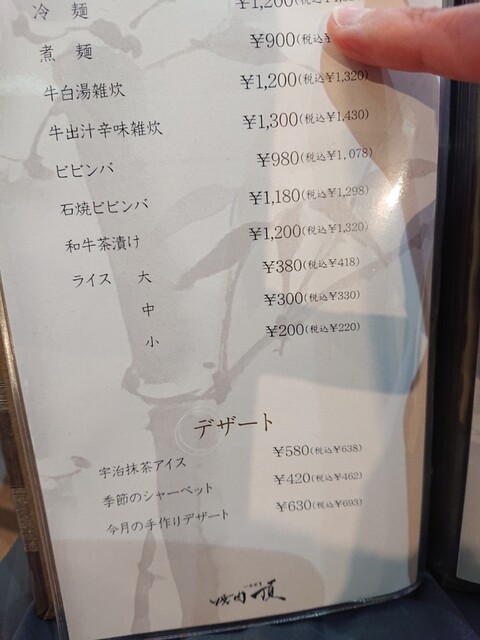 冷麺 ¥1,200(税込
煮麺 ¥900(税込
牛白湯雑炊 ¥1,200(税込¥1,320)
牛出汁辛味雑炊 ¥1,300(税込¥1,430)
ビビンバ ¥980(税込¥1,078)
石焼ビビンバ ¥1,180(税込¥1,298)
和牛茶漬け ¥1,200(税込¥1,320)
ライス 大 ¥380(税込¥418)
中 ¥300(税込¥330)
小 ¥200(税込¥220)
デザート
宇治抹茶アイス ¥580(税込¥638)
季節のシャーベット ¥420(税込¥462)
今月の手作りデザート ¥630(税込¥693)
焼肉 頂